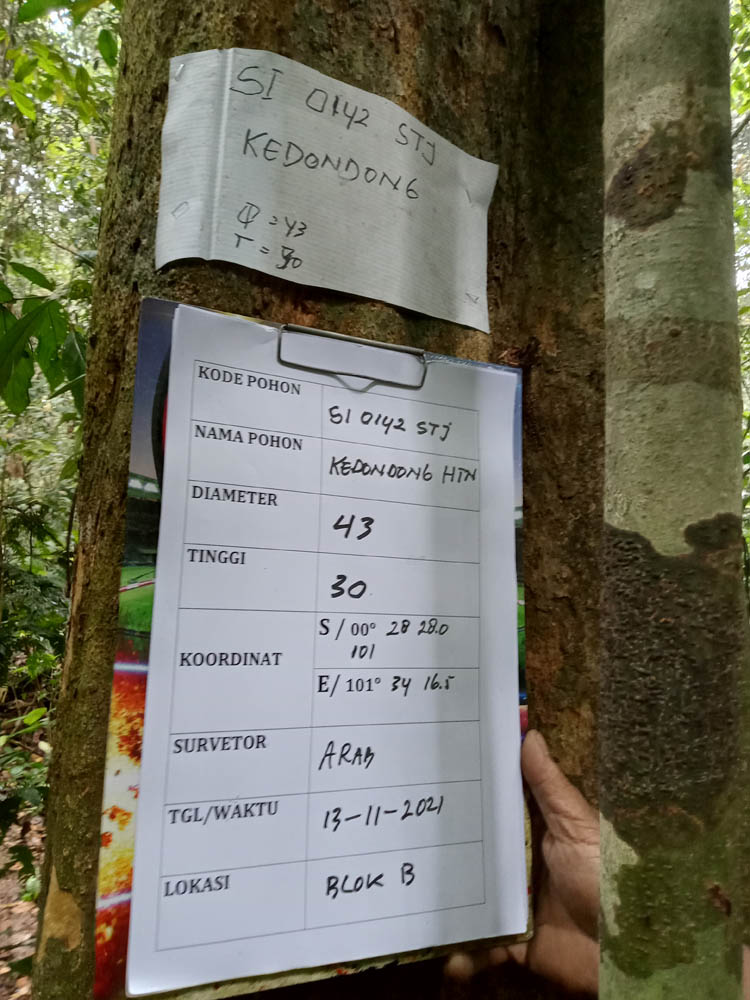 SI 0142 STJ
KEDONDONG
= 43
T = 30
KODE POHON
SI 0142 STJ
NAMA POHON
KEDONDONG HTN
DIAMETER
43
TINGGI
30
KOORDINAT
S / 00° 28 28.0
101
E/ 101° 34 16.5
SURVETOR
ARAB
TGL/WAKTU
13-11-2021
LOKASI
BLOK B